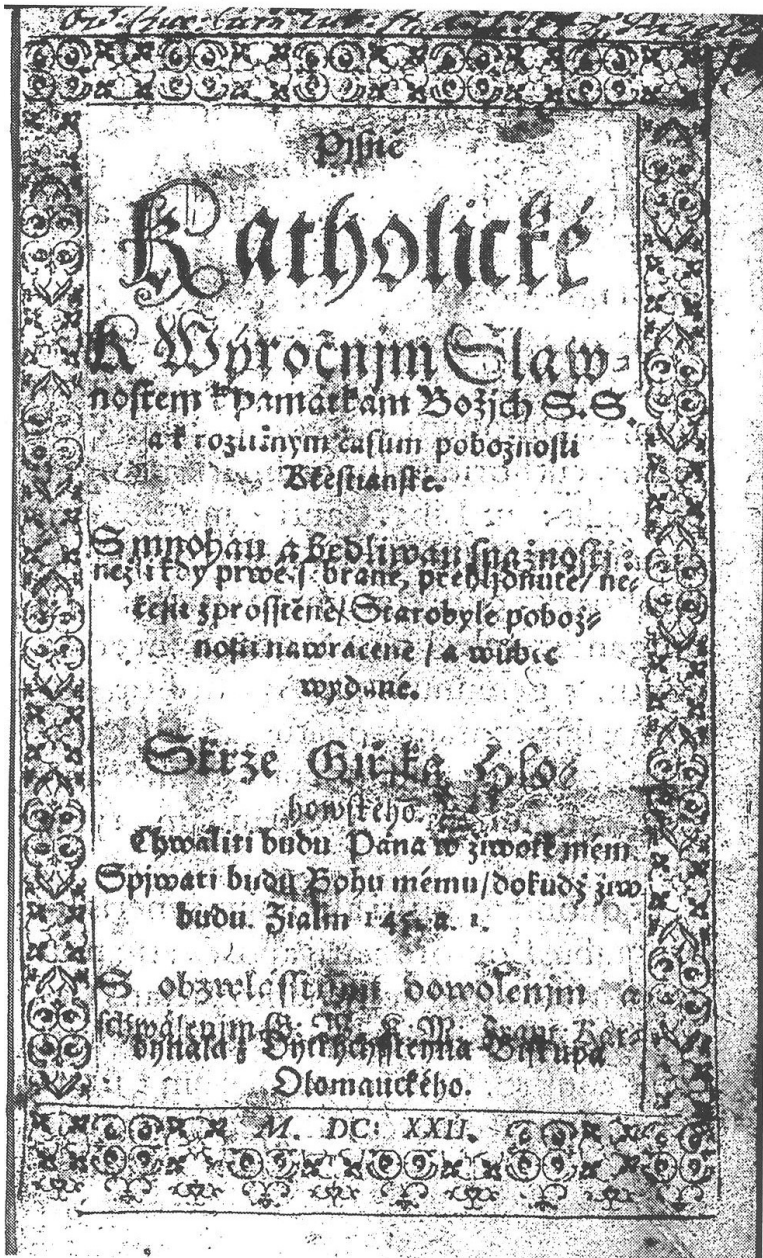 Pjsně
Katholické
K Weyročnjm Slaw-
nostem k pamatkam Božjch S.S.
a k rozličnym časum pobožnosti
Křestianské.
S mnohau a bedliwau snažnosti
nežli kdy prwe sebrané, přehljdnuté/
zprosstěné/ Starobylé pobož-
nosti nawracené / a wůbec
wydané.
Skrze Giřjka Hlo-
howského.
Chwaliti budu Pana w žiwotě mém
Spjwati budu Bohu mému/dokudž žiw
budu. Žialm 145. a. 1.
S obzwlásstnjm dowolenjm a
schwálenjm
Biskupa
Olomauckého.
M. DC: XXII.